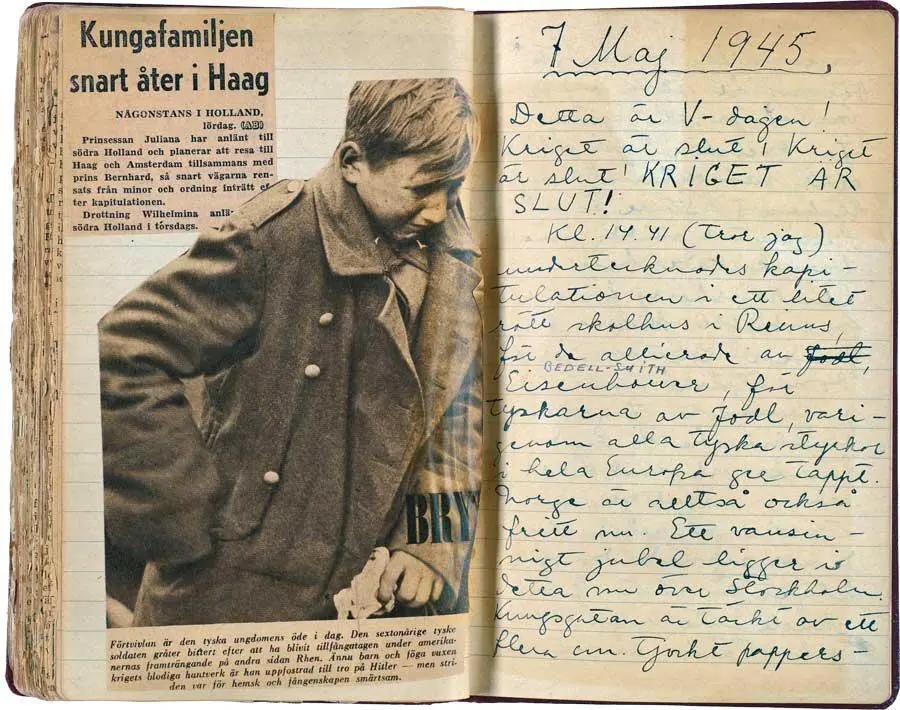 Kungafamiljen
snart åter i Haag
NÅGONSTANS I HOLLAND,
lördag. (AB)
Prinsessan Juliana har anlänt till
södra Holland och planerar att resa till
Haag och Amsterdam tillsammans med
prins Bernhard, så snart vägarna ren-
sats från minor och ordning inträtt ef
ter kapitulationen.
Drottning Wilhelmina anlä
södra Holland i torsdags.
BRY
Förtvivlan är den tyska ungdomens öde i dag. Den sextonårige tyske
soldaten gråter bittert efter att ha blivit tillfångatagen under amerika-
nernas framträngande på andra sidan Rhen. Ännu barn och föga vuxen
krigets blodiga hantverk är han uppfostrad till tro på Hitler — men stri-
den var för hemsk och fångenskapen smärtsam.
7 Maj 1945.
Detta är V-dagen!
Kriget är slut! Kriget
är slut! KRIGET ÄR
SLUT!
Kl. 14.41 (tror jag)
undertecknades kapi-
tulationen i ett litet
rött skolhus i Reims,
för de allierade av Jodl,
BEDELL-SMITH
Eisenhower, för
tyskarna av Jodl, vari-
genom alla tyska styrkor
i hela Europa ge tappt.
Norge är alltså också
fritt nu. Ett vansin-
nigt jubel ligger i
detta nu över Stockholm.
Kungsgatan är täckt av ett
flera cm. tjockt pappers-